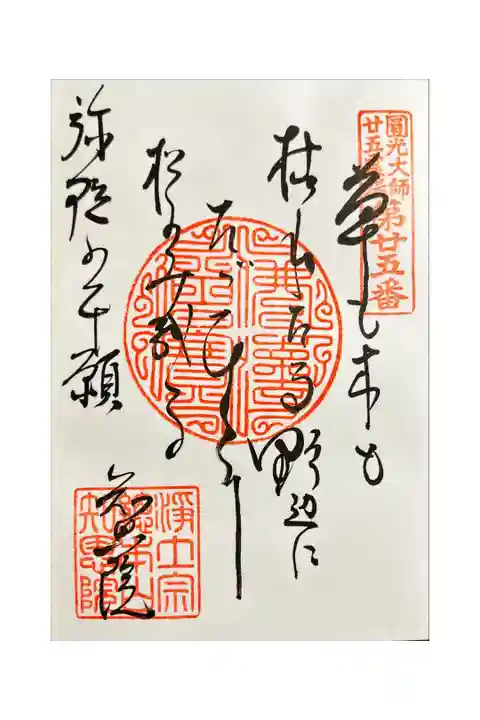 圓光大師
廿五
第廿五番
草も木も
枯れたる野辺に
たゞひとり
松のみ残る
弥陀の本願
知恩院
淨土宗
總本山
知恩院